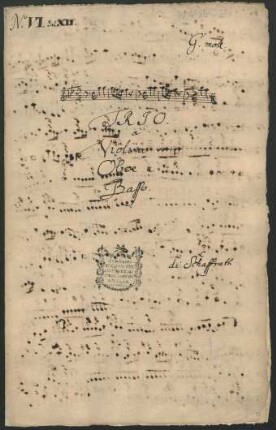 No. VI. XII
G. moll.
TRIO.
a
Violino
Oboe e
Basso
di Schaffrath